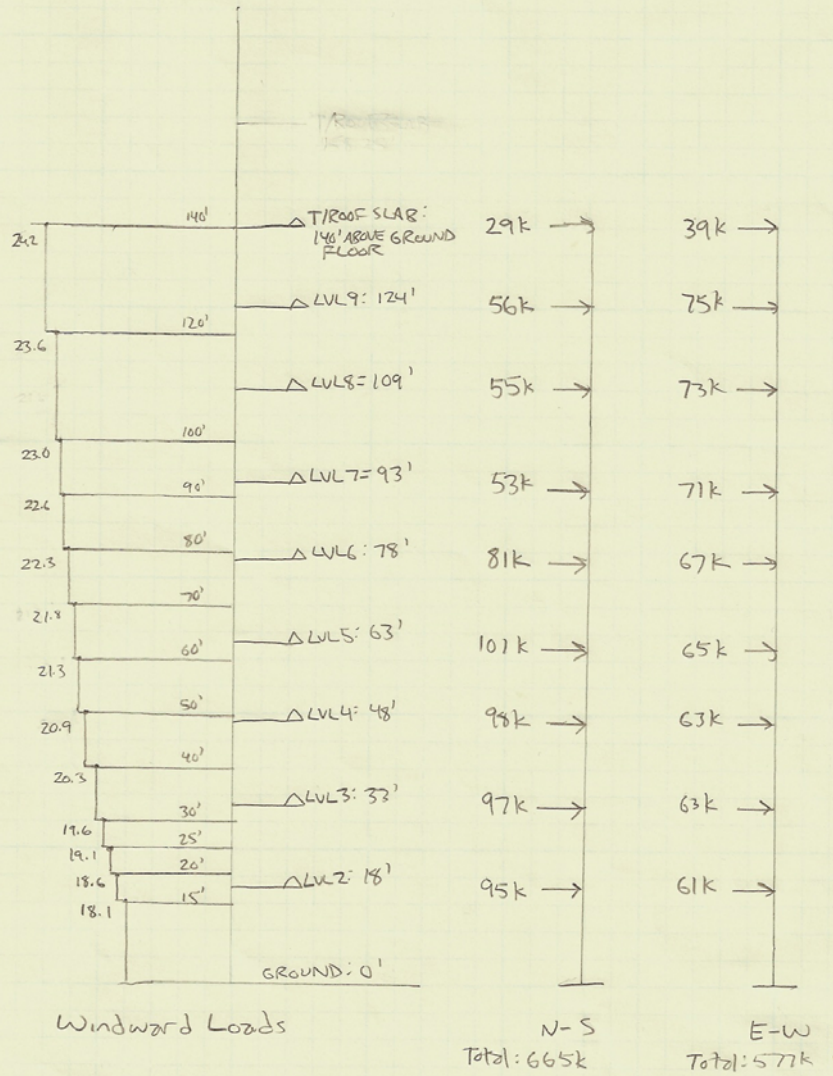 140'
T/ROOF SLAB:
140' ABOVE GROUND
FLOOR
29k
39k
24.2
LVL9: 124'
56k
75k
120'
23.6
LVL8= 109'
55k
73k
100'
23.0
LVL7= 93'
53k
71k
90'
22.6
80'
LVL6: 78'
81k
67k
22.3
70'
21.8
LVL5: 63'
101k
65k
60'
21.3
50'
LVL4: 48'
98k
63k
20.9
40'
20.3
LVL3: 33'
97k
63k
30'
19.6
25'
19.1
20'
18.6
LVL2: 18'
95k
61k
15'
18.1
GROUND: 0'
Windward Loads
N-S
E-W
Total: 665k
Total: 577k